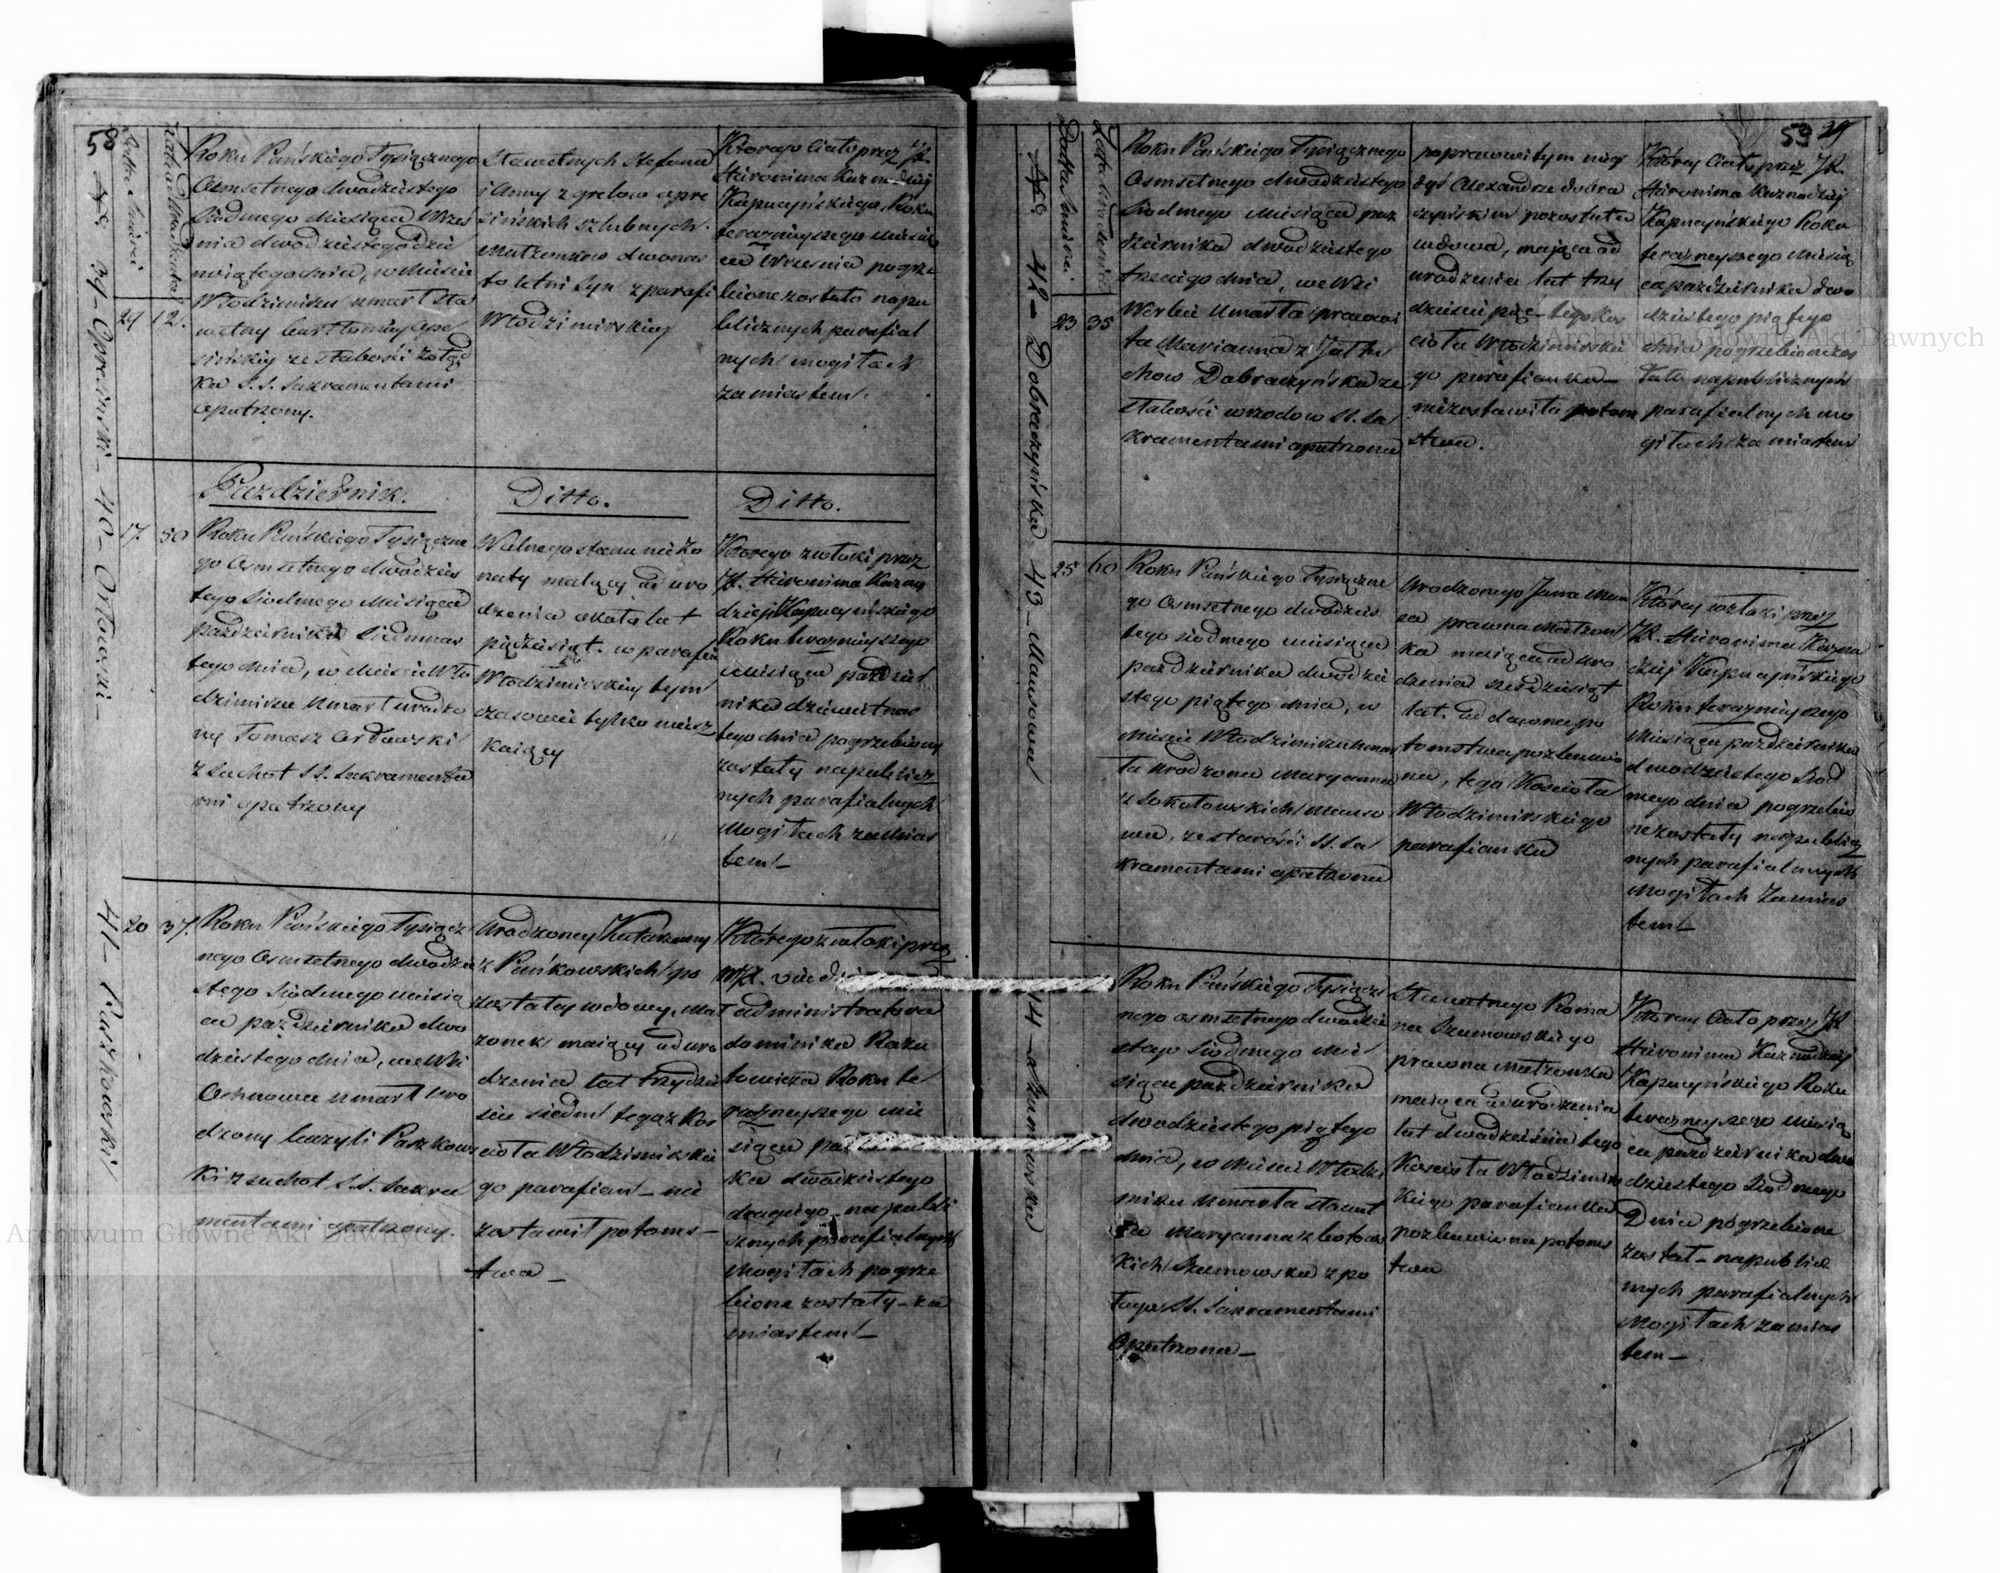 58
Data Śmierci
Lata
№ 39 - Opresiński - 40 - Orłowski -
41 - Paszkowski
29 12.
Roku Pańskiego Tysiącznego
Osmsetnego dwudziestego
Siodmego miesiąca Wrześ
nia dwudziestego dzie
wiątego dnia, w mieście
Włodzimirzu umarł sła
wetny Bartłomiey Opre
sińskiy ze słabości żołąd
ka S.S. Sakramentami
opatrzony.
Sławetnych Stefana
i Anny z Grelow Opre
sińskich szlubnych
małżonkow dwunas
to letni Syn z parafii
Włodzimirskiey
Ktorego Ciało przez JX.
Hieronima Kaznodzieję
Kapucyńskiego, Roku
teraznieyszego miesią
ca Września pogrze
bione zostało na pu
blicznych parafial
nych mogiłach
za miastem.
Pazdziernik.
Ditto.
Ditto.
17. 50
Roku Pańskiego Tysiączne
go Osmsetnego dwudzies
tego Siodmego Miesiąca
pazdziernika Siedmnas
tego dnia, w mieście Wło
dzimirzu umarł urodzo
ny Tomasz Orłowski
z Suchot SS. Sakramenta
mi opatrzony
Wolnego stanu nieżo
naty maiący od uro
dzenia około lat
piędziesiąt. w parafii
Włodzimirskiey tym
czasowie tylko miesz
kaiący
Ktorego zwłoki przez
JX. Hieronima Kazno
dzieję Kapucyńskiego
Roku teraznieyszego
Miesiąca pazdzier
nika dziewietnas
tego dnia pogrzebiony
zostały na publicz
nych parafialnych
Mogiłach za mias
tem -
20 37.
Roku Pańskiego Tysiącz
nego Osmsetnego dwudzie
stego Siodmego miesią
ca pazdziernika dwu
dziestego dnia, we Wsi
umarł Uro
dzony Bazyli Paszkows
ki z suchot S.S. Sakra
mentami opatrzony.
Urodzoney Katarzyny
z Pańkowskich po
zostałey wdowy, mał
żonek maiący od uro
dzenia lat trzydzie
ści siedm tegoż Koś
cioła Włodzimirskie
go parafian - nie
zostawił potoms -
twa -
Którego zwłoki przez
administratora
Dominika
Roku te
raznieyszego mie
siąca paz
ka dwudziestego
drugiego na publi
cznych parafialnych
Mogiłach pogrze
bione zostały - za
miastem -
59 29
Data Śmierci
Lata Urodzenia
№ 42 - Dobraczyńska 43 - Mausowa
44 - Szumowska
23 35
Roku Pańskiego Tysiącznego
Osmsetnego dwudziestego
Siodmego miesiąca paz
dziernika dwudziestego
trzeciego dnia, we Wsi
Werbie umarła pracowi
ta Marianna z
Dobraczyńska ze
słabości wrzodow SS. Sa
kramentami opatrzona
po pracowitym niey
dyś Alexandrze Dobra
czyńskim pozostała
wdowa, maiąca od
urodzenia lat trzy
dzieści pięć - tego Koś
cioła Włodzimirskie
go parafianka -
niezostawiła potom
stwa.
Którey Ciało przez JX.
Hieronima Kaznodzieję
Kapucyńskiego Roku
teraznieyszego miesią
ca pazdziernika dwu
dziestego piątego
dnia pogrzebione zos
tało na publicznych
parafialnych mo
giłach za miastem
25 60
Roku Pańskiego Tysiączne
go Osmsetnego dwudzies
tego siodmego miesiąca
pazdziernika dwudzie
stego piątego dnia, w
mieście Włodzimirzu umar
ła Urodzona Maryanna
z Sokołowskich Mauso
wa, ze starości SS. Sa
kramentami opatrzona
Urodzonego Jana Mau
sa prawna małżon
ka maiąca od uro
dzenia sześdziesiąt
lat. Od dawna po
tomstwa pozbawio
na, tego Kościoła
Włodzimirskiego
parafianka
Którey zwłoki przez
JX. Hieronima Kazno
dzieję Kapucyńskiego
Roku teraznieyszego
Miesiąca pazdziernika
dwudziestego Siod
mego dnia pogrzebio
ne zostały na publicz
nych parafialnych
Mogiłach za mias
tem -
Roku Pańskiego Tysiącz
nego osmsetnego dwudzie
stego Siodmego mie
siąca pazdziernika
dwudziestego piątego
dnia, w mieście Włodzi
mirzu umarła sławet
na Maryanna z
kich Szumowska z po
łogu SS. Sakramentami
Opatrzona -
Sławetnego Roma
na Szumowskiego
prawna małżonka
maiąca od urodzenia
lat dwadzieścia tego
Kościoła Włodzimirs
kiego parafianka
pozbawiona potoms
twa
Ktorey Ciało przez JX
Hieronima Kaznodzieję
Kapucyńskiego Roku
teraznieyszego miesią
ca pazdziernika dwu
dziestego Siodmego
Dnia pogrzebione
zostało - na publicz
nych parafialnych
Mogiłach za mias
tem -
Archiwum Główne Akt Dawnych
Archiwum Główne Akt Dawnych